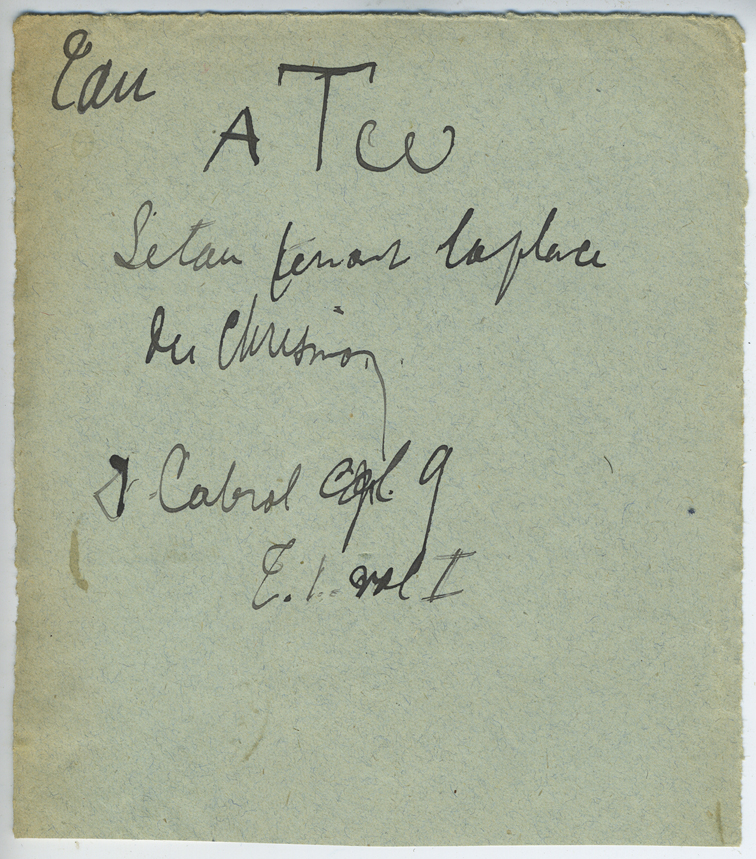 Tau
A T ω
Le tau tenant la place
du Chrismon
D. Cabrol col. 9
T. 1. vol I